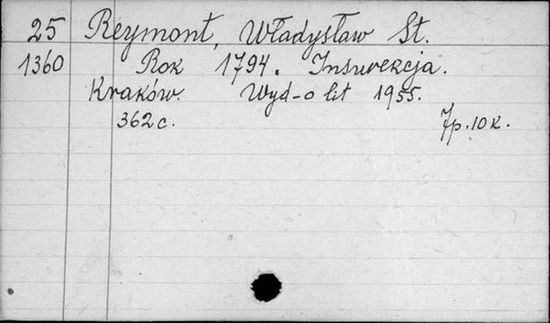 25 Reymont, Władysław St.
1360 Rok 1794. Insurekcja.
Kraków. Wyd-o lit 1955.
362 c. 7р. 10 к.